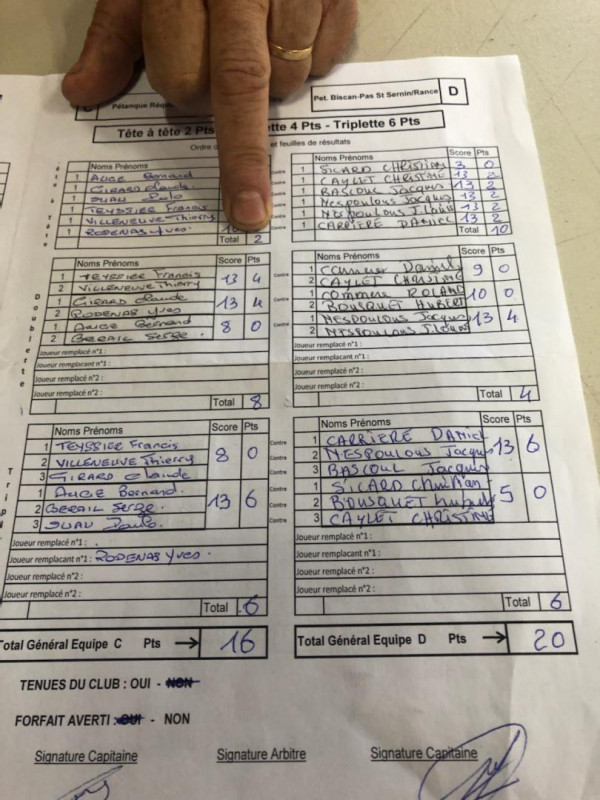 C Pétanque Réqu
Pet. Biscan-Pas St Sernin/Rance D
Tête à tête 2 Pts - ette 4 Pts - Triplette 6 Pts
Ordre et feuilles de résultats
Noms Prénoms
1 AUGE Bernard
1 GIRARD Claude
1 JUAN Paulo
1 TEYSSIER Francis
1 VILLENEUVE Thierry
1 RODENAS Yves
Total 2
Noms Prénoms Score Pts
1 SICARD CHRISTIAN 3 0
1 CAYLET CHRISTINE 13 2
1 BASCOUL Jacques 13 2
1 Nespoulous Jacques 13 2
1 13 2
1 CARRIERE DANIEL 13 2
Total 10
Doublette
Noms Prénoms Score Pts
1 TEYSSIER Francis 13 4
2 VILLENEUVE Thierry
1 GIRARD Claude 13 4
2 RODENAS Yves
1 AUGE Bernard 8 0
2 BERAIL Serge.
Joueur remplacé n°1 :
Joueur remplaçant n°1 :
Joueur remplacé n°2 :
Joueur remplacé n°2 :
Total 8
Contre
Contre
Contre
Noms Prénoms Score Pts
1 9 0
2 CAYLET CHRISTINE
1 ROLAND 10 0
2 BOUSQUET HUBERT
1 NESPOULOUS Jacques 13 4
2 NESPOULOUS
Joueur remplacé n°1 :
Joueur remplaçant n°1 :
Joueur remplacé n°2 :
Joueur remplacé n°2 :
Total 4
Noms Prénoms Score Pts
1 TEYSSIER Francis 8 0
2 VILLENEUVE Thierry
3 GIRARD Claude
1 AUGE Bernard. 13 6
2 BERAIL Serge
3 JUAN Paulo.
Joueur remplacé n°1 :
Joueur remplaçant n°1 : RODENAS Yves.
Joueur remplacé n°2 :
Joueur remplacé n°2 :
Total 6
Contre
Contre
Noms Prénoms Score Pts
1 CARRIERE DANIEL 13 6
2 NESPOULOUS Jacques
3 BASCOUL Jacques
1 SICARD Christian 5 0
2 BOUSQUET Hubert
3 CAYLET CHRISTINE
Joueur remplacé n°1 :
Joueur remplaçant n°1 :
Joueur remplacé n°2 :
Joueur remplacé n°2 :
Total 6
Total Général Equipe C Pts → 16
Total Général Equipe D Pts → 20
TENUES DU CLUB : OUI - NON
FORFAIT AVERTI : OUI - NON
Signature Capitaine
Signature Arbitre
Signature Capitaine